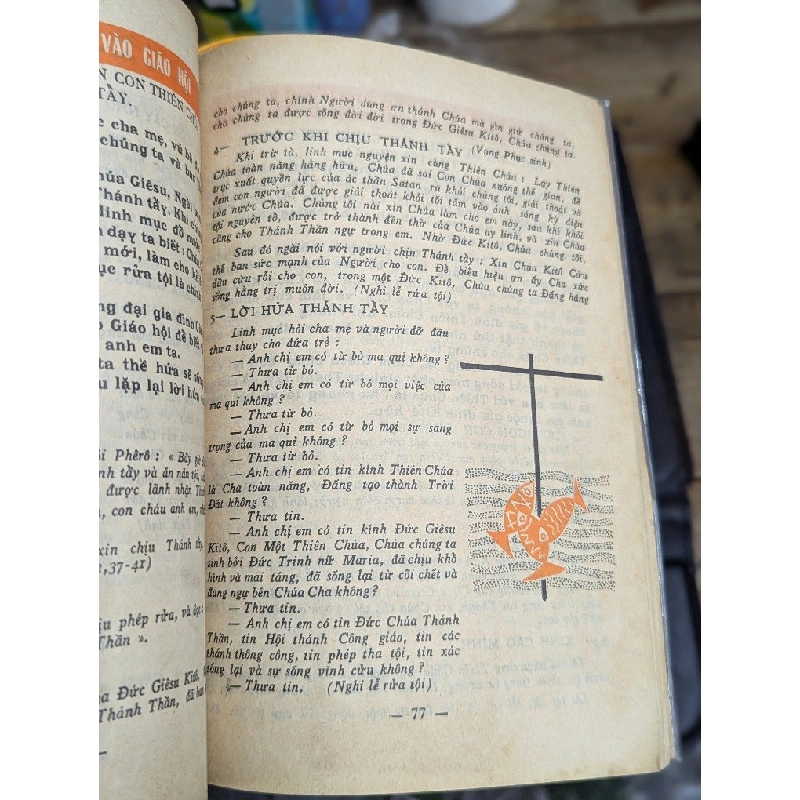 VÀO GIÁO HỘI
N CON THIÊN
TẨY.
c cha mẹ, và bè
chúng ta và ban
húa Giêsu, Ngài
Thánh tẩy. Khi
linh mục đồ nước
dạy ta biết: Chúa
mới, làm cho
ục rửa tội là chính
ng đại gia đình
Giáo hội đề biết
anh em ta.
ta thề hứa sẽ sống
u lặp lại lời hứa
i Phêrô : « Bây giờ
nh tẩy và ăn năn tội,
được lãnh nhận
, con cháu anh em,
xin chịu Thánh tẩy
,37-41)
ịu phép rửa, và đọc
Thần ».
a Đức Giêsu Kitô,
Thánh Thần, đã ban
cho chúng ta, chính Người dùng ơn thánh Chúa mà gìn giữ chúng ta,
cho chúng ta được sống đời đời trong Đức Giêsu Kitô, Chúa chúng ta.
4— TRƯỚC KHI CHỊU THÁNH TẨY (Vọng Phục sinh)
Khi trừ tà, linh mục nguyện xin cùng Thiên Chúa : Lạy Thiên
Chúa toàn năng hằng hữu, Chúa đã sai Con Chúa xuống thế gian, để
trục xuất quyền lực của ác thần Satan ra khỏi chúng tôi, giải thoát và
đem con người đã được giải thoát khỏi tối tăm vào ánh sáng kỳ diệu
của nước Chúa. Chúng tôi nài xin Chúa làm cho em này, sau khi khỏi
tội nguyên tổ, được trở thành đền thờ của Chúa uy linh, và xin Chúa
cũng cho Thánh Thần ngự trong em. Nhờ Đức Kitô, Chúa chúng tôi.
Sau đó ngài nói với người chịu Thánh tẩy : Xin Chúa Kitô Cứu
thế ban sức mạnh của Người cho con. Để biểu hiệu ơn ấy Cha xức
dầu cứu rỗi cho con, trong một Đức Kitô, Chúa chúng ta Đấng hằng
sống hằng trị muôn đời. (Nghi lễ rửa tội)
5— LỜI HỨA THÁNH TẨY
Linh mục hỏi cha mẹ và người đỡ đầu
thưa thay cho đứa trẻ :
— Anh chị em có từ bỏ ma quỉ không ?
— Thưa từ bỏ.
— Anh chị em có từ bỏ mọi việc của
ma quỉ không ?
— Thưa từ bỏ.
— Anh chị em có từ bỏ mọi sự sang
trọng của ma quỉ không ?
— Thưa từ bỏ.
— Anh chị em có tin kính Thiên Chúa
là Cha toàn năng, Đấng tạo thành Trời
Đất không ?
— Thưa tin.
— Anh chị em có tin kính Đức Giêsu
Kitô, Con Một Thiên Chúa, Chúa chúng ta
sinh bởi Đức Trinh nữ Maria, đã chịu khổ
hình và mai táng, đã sống lại từ cõi chết và
đang ngự bên Chúa Cha không ?
— Thưa tin.
— Anh chị em có tin Đức Chúa Thánh
Thần, tin Hội thánh Công giáo, tin các
thánh thông công, tin phép tha tội, tin xác
sống lại và sự sống vĩnh cửu không ?
— Thưa tin. (Nghi lễ rửa tội)
— 77 —